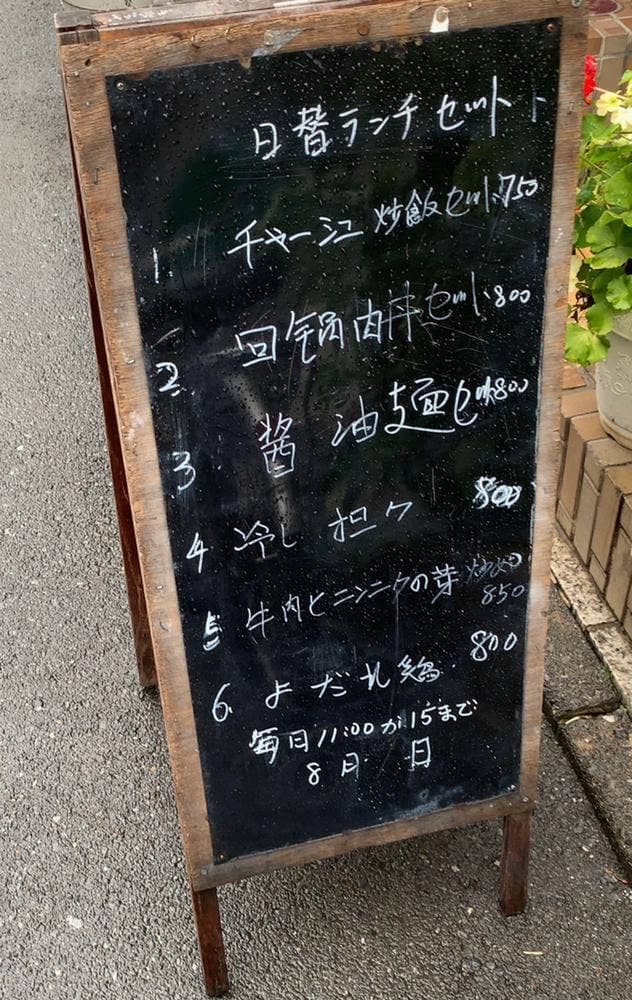 日替ランチセット
1. チャーシュー炒飯セット750
2. 回鍋肉丼セット800
3 醤油麺セット800
4 冷し担々 800
5 牛肉とニンニクの芽炒め 850
6. よだれ鶏. 800
毎日11:00から15まで
8月 日